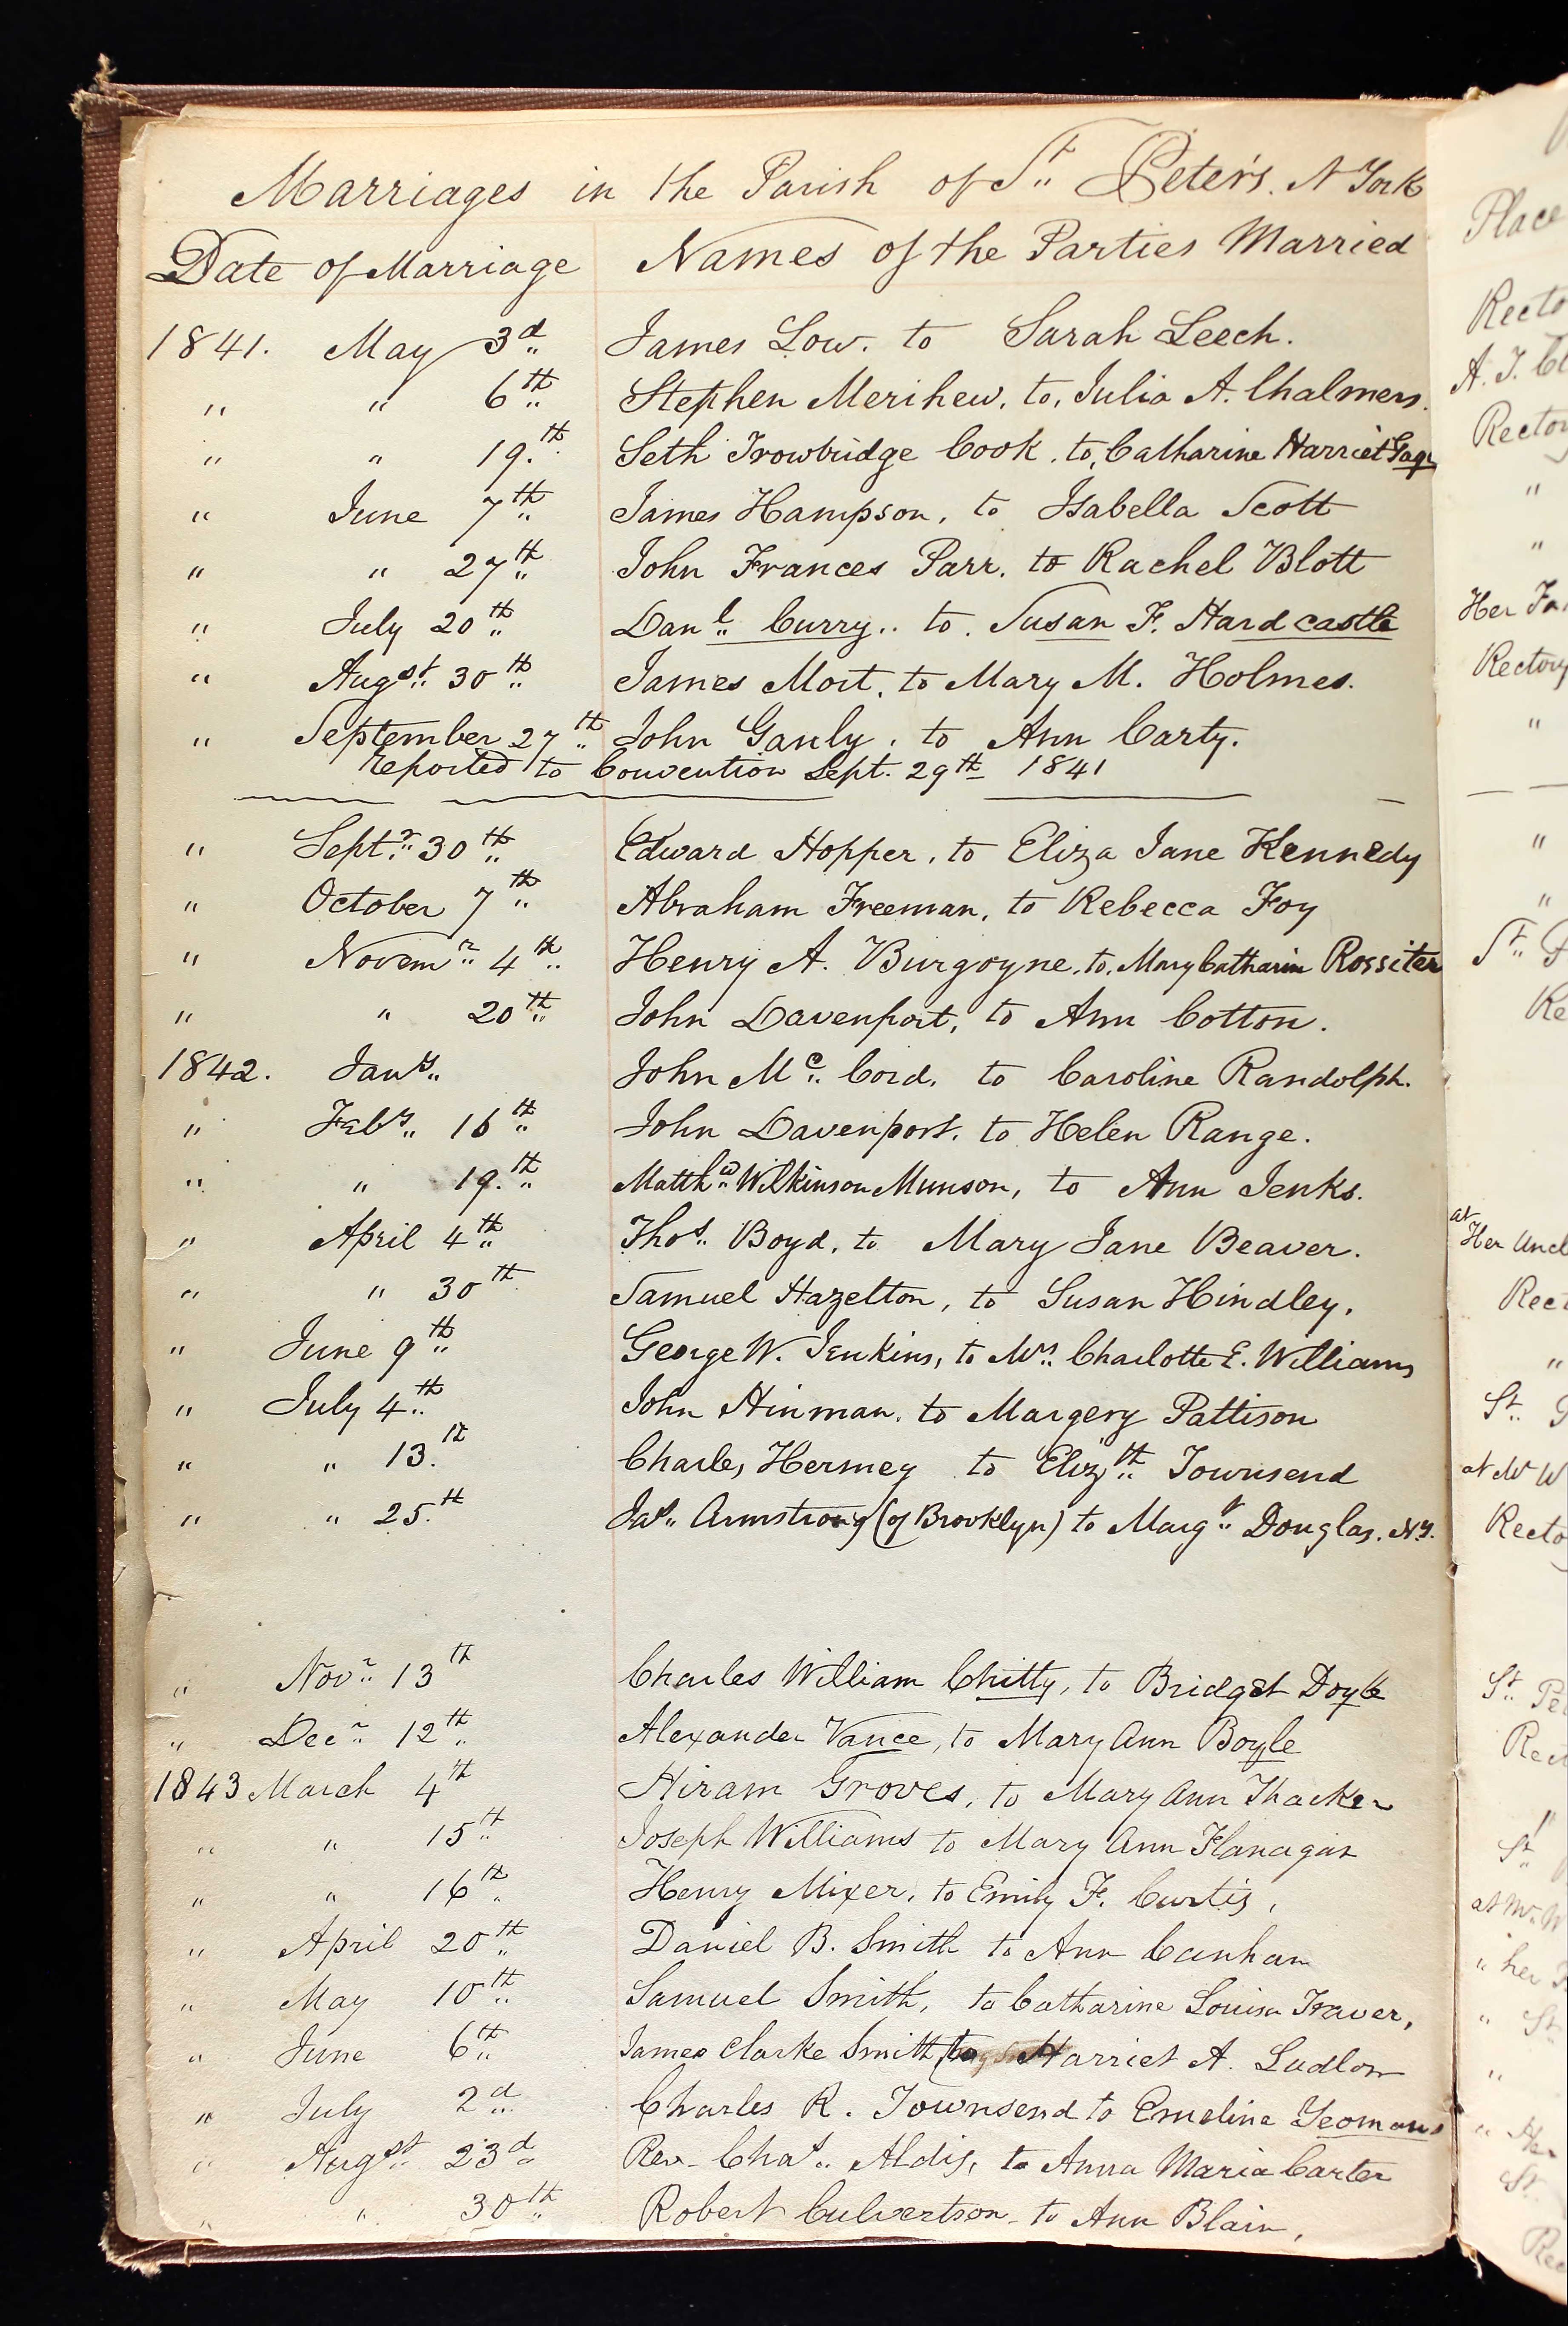 Marriages in the Parish of St. Peter's. N York
Date of Marriage Names of the Parties Married
1841. May 3d James Low. to Sarah Leech.
" " 6th Stephen Merihew, to, Julia A. Chalmers.
" " 19.th Seth Trowbridge Cook. to, Catharine Harriet Gage
" June 7th James Hampson, to Isabella Scott
" " 27th John Frances Parr. to Rachel Blott
" July 20th Danl. Curry.. to. Susan F. Hardcastle
" Augst. 30th James Mort, to Mary M. Holmes.
" September 27th John Ganly, to Ann Carty.
reported to Convention Sept. 29th 1841
" Septr. 30th Edward Hopper, to Eliza Jane Kennedy
" October 7th Abraham Freeman, to Rebecca Foy
" Novemr. 4th Henry A. Burgoyne, to, Mary Catharin Rossiter
" " 20th John Davenport, to Ann Cotton.
1842. Jany. John Mc. Cord, to Caroline Randolph.
" Feby. 16th John Davenport, to Helen Range.
" " 19.th Matthw. Wilkinson Munson, to Ann Jenks.
" April 4th Thos. Boyd, to Mary Jane Beaver.
" " 30th Samuel Hazelton, to Susan Hindley.
" June 9th George W. Jenkins, to Mrs. Charlotte E. Williams
" July 4th John Hinman, to Margery Pattison
" " 13.th Charles Hermey to Elizth. Townsend
" " 25.th Jas. Armstrong (of Brooklyn) to Margt. Douglas. NY.
" Novr. 13th Charles William Chitty, to Bridget Doyle
" Decr. 12th Alexander Vance, to Mary Ann Boyle
1843 March 4th Hiram Groves, to Mary Ann Thacker
" " 15th Joseph Williams to Mary Ann Flanagan
" " 16th Henry Mixer, to Emily F. Curtis,
" April 20th Daniel B. Smith to Ann Canham
" May 10th Samuel Smith, to Catharine Louisa Traver,
" June 6th James Clarke Smith to Harriet A. Ludlow
" July 2d Charles R. Townsend to Emeline Yeomans
" Augst. 23d Rev. Chas. Aldis, to Anna Maria Carter
" " 30th Robert Culvertson to Ann Blain,
Place
Recto
A. J.
Rectory
"
"
Her
Rectory
"
"
"
St.
Re
at
Her Uncl
Rect
"
St.
at Mr W
Recto
St. Pe
Rec
St.
at Mr. W
" her
" St
"
" Her
St.
Rec